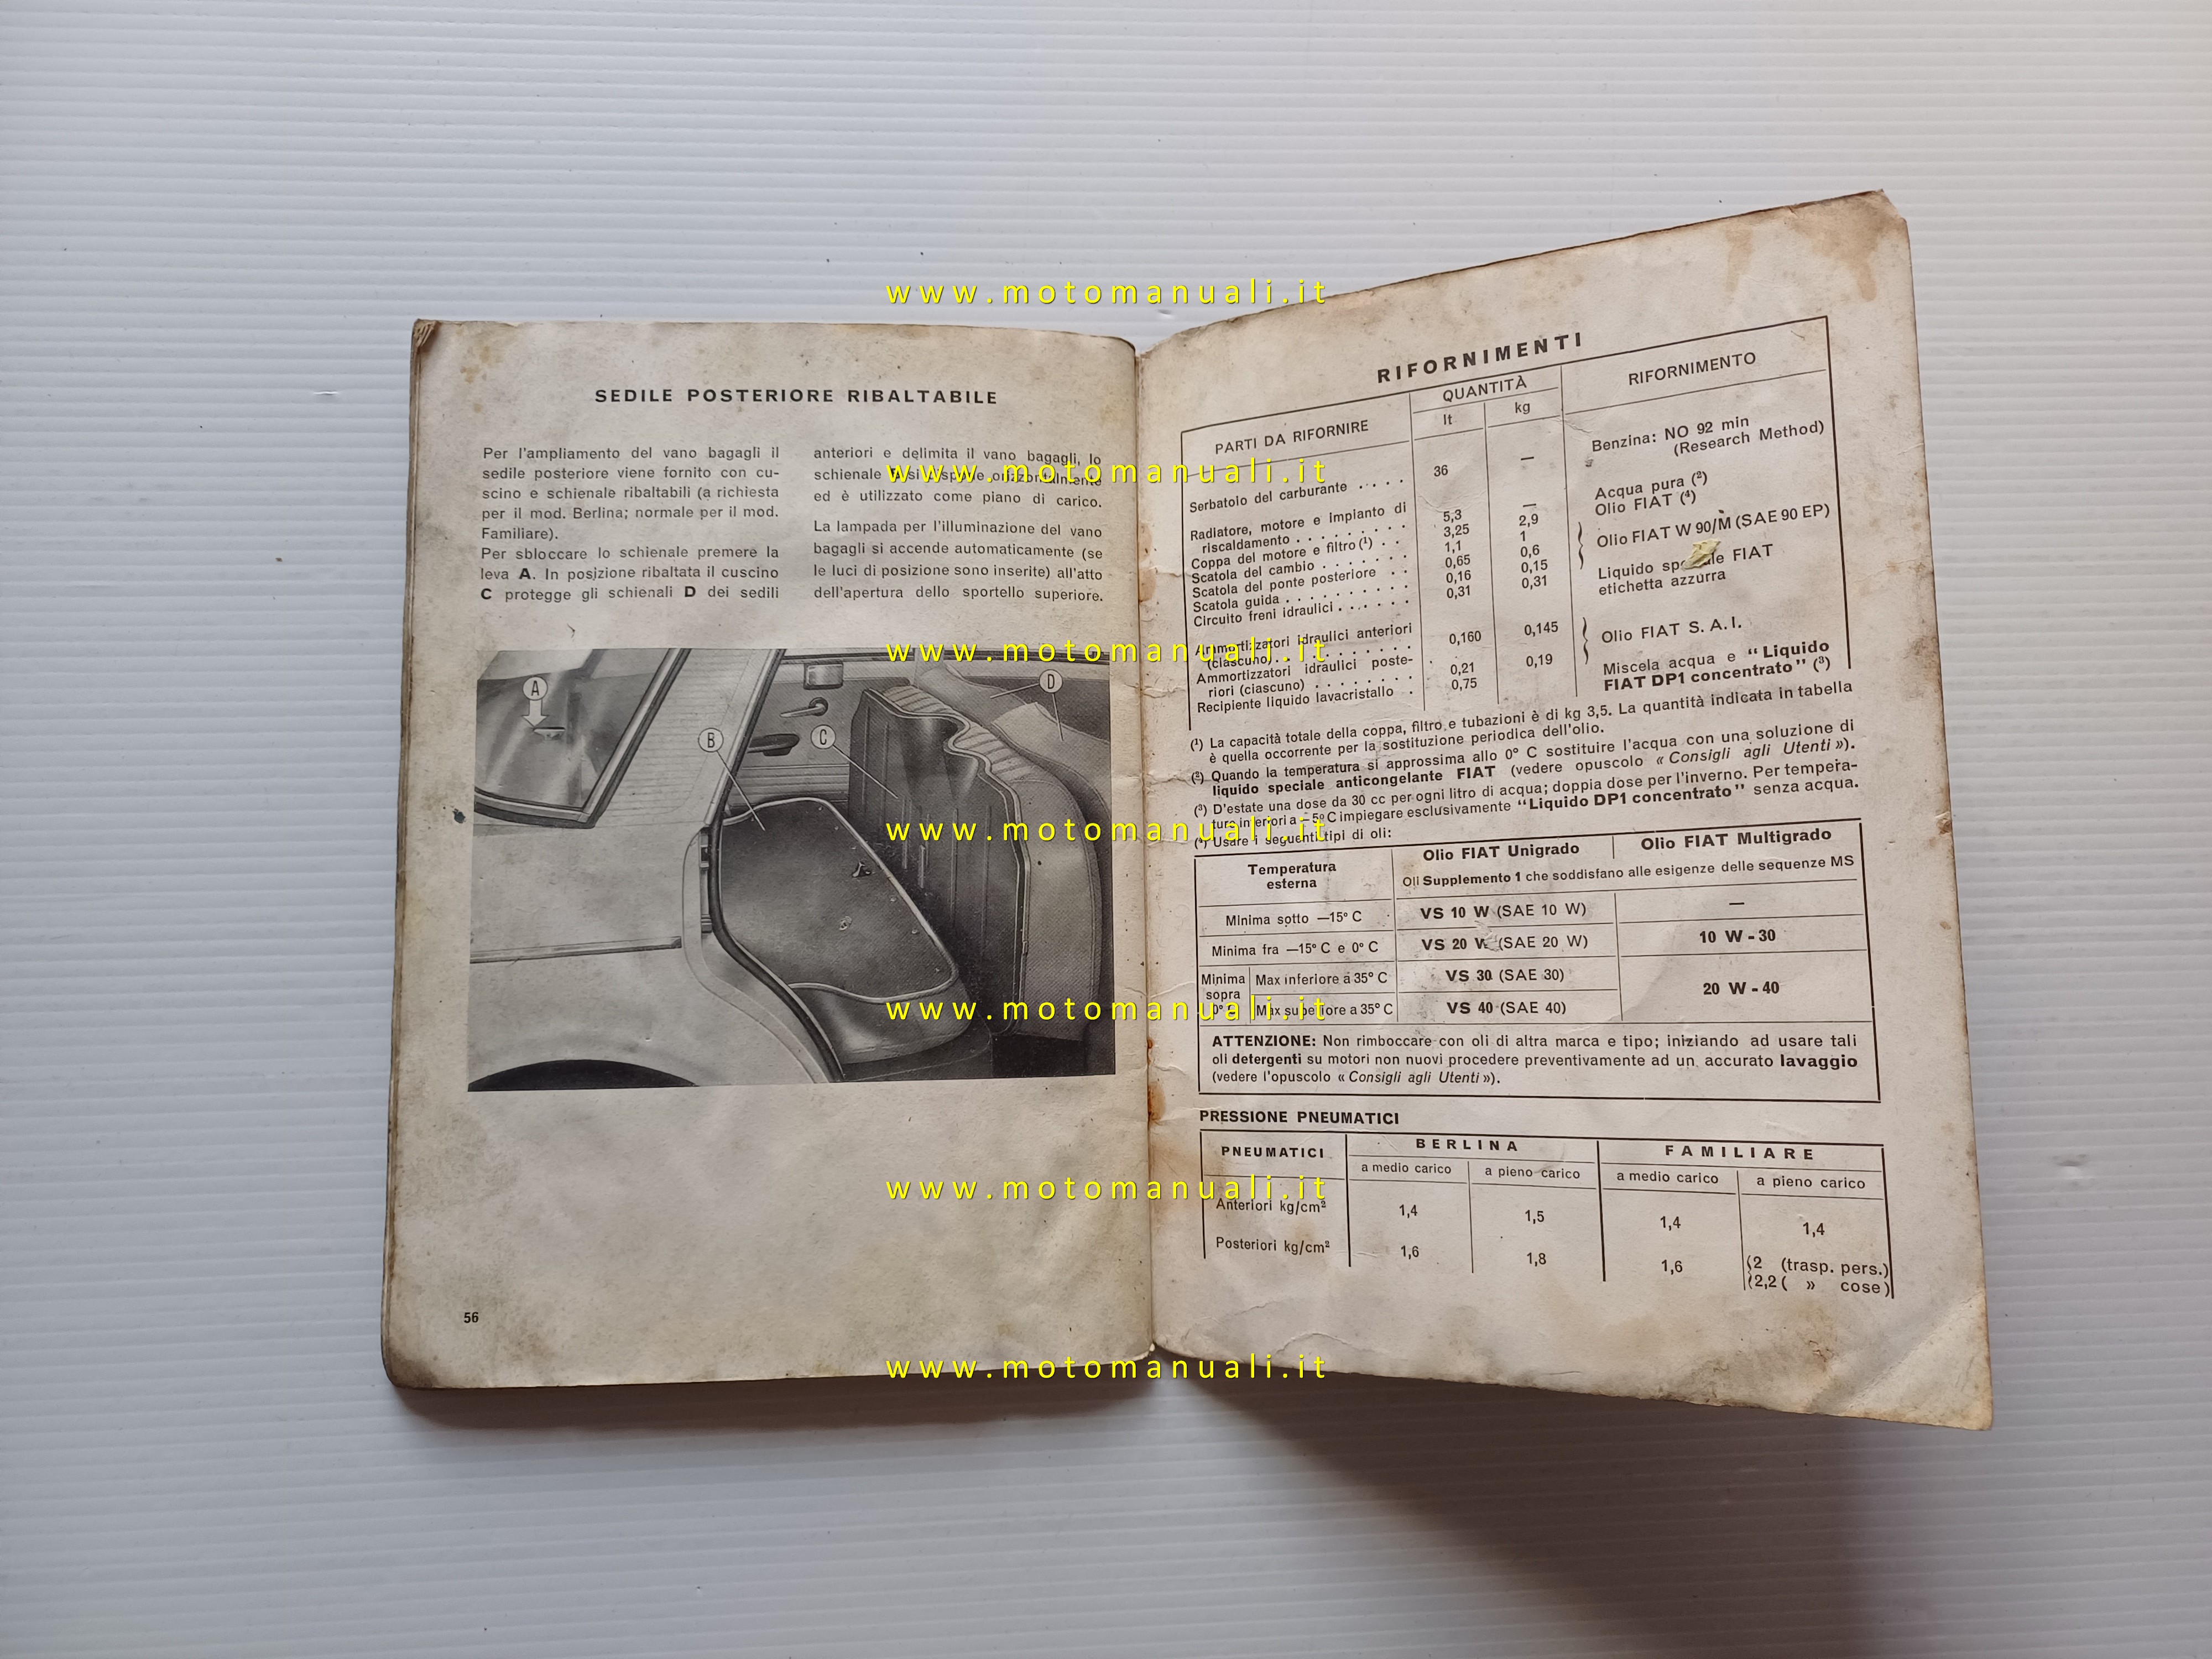 SEDILE POSTERIORE RIBALTABILE
Per l'ampliamento del vano bagagli il
sedile posteriore viene fornito con cu-
scino e schienale ribaltabili (a richiesta
per il mod. Berlina; normale per il mod.
Familiare).
Per sbloccare lo schienale premere la
leva A. In posizione ribaltata il cuscino
C protegge gli schienali D dei sedili
anteriori e delimita il vano bagagli, lo
schienale B si dispone orizzontalmente
ed è utilizzato come piano di carico.
La lampada per l'illuminazione del vano
bagagli si accende automaticamente (se
le luci di posizione sono inserite) all'atto
dell'apertura dello sportello superiore.
A
B
C
D
56
RIFORNIMENTI
PARTI DA RIFORNIRE QUANTITÀ RIFORNIMENTO
lt kg
Serbatoio del carburante . . . . . 36 — Benzina: NO 92 min
(Research Method)
Radiatore, motore e impianto di
riscaldamento . . . . . . . . 5,3 — Acqua pura (²)
Coppa del motore e filtro (¹) . . 3,25 2,9 Olio FIAT (⁴)
Scatola del cambio . . . . . . . 1,1 1 Olio FIAT W 90/M (SAE 90 EP)
Scatola del ponte posteriore . . 0,65 0,6
Scatola guida . . . . . . . . . . 0,16 0,15
Circuito freni idraulici . . . . . . 0,31 0,31 Liquido speciale FIAT
etichetta azzurra
Ammortizzatori idraulici anteriori
(ciascuno) . . . . . . . . . . 0,160 0,145 Olio FIAT S. A. I.
Ammortizzatori idraulici poste-
riori (ciascuno) . . . . . . . . 0,21 0,19
Recipiente liquido lavacristallo . 0,75 Miscela acqua e "Liquido
FIAT DP1 concentrato" (³)
(¹) La capacità totale della coppa, filtro e tubazioni è di kg 3,5. La quantità indicata in tabella
è quella occorrente per la sostituzione periodica dell'olio.
(²) Quando la temperatura si approssima allo 0° C sostituire l'acqua con una soluzione di
liquido speciale anticongelante FIAT (vedere opuscolo « Consigli agli Utenti »).
(³) D'estate una dose da 30 cc per ogni litro di acqua; doppia dose per l'inverno. Per tempera-
ture inferiori a — 5° C impiegare esclusivamente "Liquido DP1 concentrato" senza acqua.
(⁴) Usare i seguenti tipi di oli:
Temperatura Olio FIAT Unigrado Olio FIAT Multigrado
esterna Oli Supplemento 1 che soddisfano alle esigenze delle sequenze MS
Minima sotto —15° C VS 10 W (SAE 10 W) —
Minima fra —15° C e 0° C VS 20 W (SAE 20 W) 10 W - 30
Minima sopra 0° C Max inferiore a 35° C VS 30 (SAE 30) 20 W - 40
Max superiore a 35° C VS 40 (SAE 40)
ATTENZIONE: Non rimboccare con oli di altra marca e tipo; iniziando ad usare tali
oli detergenti su motori non nuovi procedere preventivamente ad un accurato lavaggio
(vedere l'opuscolo « Consigli agli Utenti »).
PRESSIONE PNEUMATICI
PNEUMATICI BERLINA FAMILIARE
a medio carico a pieno carico a medio carico a pieno carico
Anteriori kg/cm² 1,4 1,5 1,4 1,4
Posteriori kg/cm² 1,6 1,8 1,6 2 (trasp. pers.)
2,2 ( » cose)
www.motomanuali.it
www.motomanuali.it
www.motomanuali.it
www.motomanuali.it
www.motomanuali.it
www.motomanuali.it
www.motomanuali.it